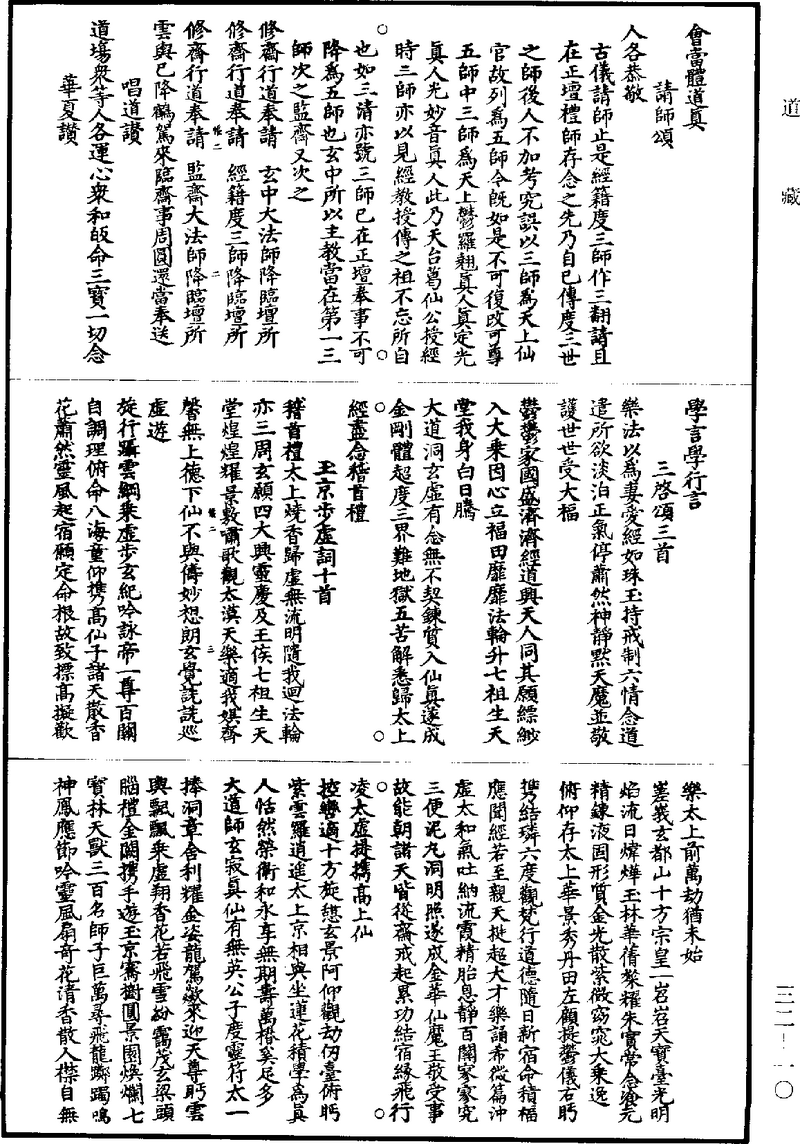 道藏
三二—一〇
會當體道真
請師頌
人各恭敬
古儀請師止是經籍度三師作三翻請且
在正壇禮師存念之先乃自己傳度三世
之師後人不加考究誤以三師為天上仙
官故列為五師今既如是不可復改可尊
五師中三師為天上鬱羅翹真人真定光
真人光妙音真人此乃天台葛仙公授經
時三師亦以見經教授傳之祖不忘所自
也如三清亦號三師已在正壇奉事不可
降為五師也玄中所以主教當在第一三
師次之監齋又次之
修齋行道奉請 玄中大法師降臨壇所
修齋行道奉請 經籍度三師降臨壇所
修齋行道奉請 監齋大法師降臨壇所
雲輿已降鶴駕來臨齋事周圓還當奉送
唱道讚
道場衆等人各運心衆和皈命三寶一切念
華夏讚
學言學行言
三啓頌三首
樂法以為妻愛經如珠玉持戒制六情念道
遣所欲淡泊正氣停蕭然神靜默天魔並敬
護世世受大福
鬱鬱家國盛濟濟經道興天人同其願縹緲
入大乘因心立福田靡靡法輪升七祖生天
堂我身白日騰
大道洞玄虛有念無不契鍊質入仙真遂成
金剛體超度三界難地獄五苦解悉歸太上
經靈念稽首禮
玉京步虛詞十首
稽首禮太上燒香歸虛無流明隨我迴法輪
亦三周玄願四大興靈慶及王侯七祖生天
堂煌煌耀景敷嘯歌觀太漠天樂適我娛齊
馨無上德下仙不與儔妙想朗玄覺詵詵巡
虛遊
旋行躡雲綱乘虛步玄紀吟詠帝一尊百關
自調理俯命八海童仰攜高仙子諸天散香
花蕭然靈風起宿願定命根故致標高擬歡
樂太上前萬劫猶未始
嵳峩玄都山十方宗皇一岧岧天寶臺光明
焰流日煒燁玉林華蒨粲耀朱實常念飡元
精鍊液固形質金光散紫微窈窕大乘逸
俯仰存太上華景秀丹田左顧提鬱儀右眄
攜結璘六度觀梵行道德隨日新宿命積福
應聞經若至親天挺超大才樂誦希微篇沖
虛太和氣吐納流霞精胎息靜百關寥寥究
三便泥丸洞明照遂成金華仙魔王敬受事
故能朝諸天皆從齋戒起累功結宿緣飛行
凌太虛提攜高上仙
控轡適十方旋憩玄景阿仰觀劫仞臺俯眄
紫雲羅逍遙太上京相與坐蓮花積學為真
人恬然榮衛和永享無期壽萬椿奚足多
大道師玄寂真仙有無英公子度靈符太一
捧洞章舍利耀金姿龍駕欻來迎天尊眄雲
輿飄飄乘虛翔香花若飛雪紛靄茂玄梁頭
腦禮金闕攜手遊玉京騫樹圓景園煥爛七
寶林天獸三百名師子巨萬尋飛龍躑躅鳴
神鳳應節吟靈風扇奇花清香散人襟自無